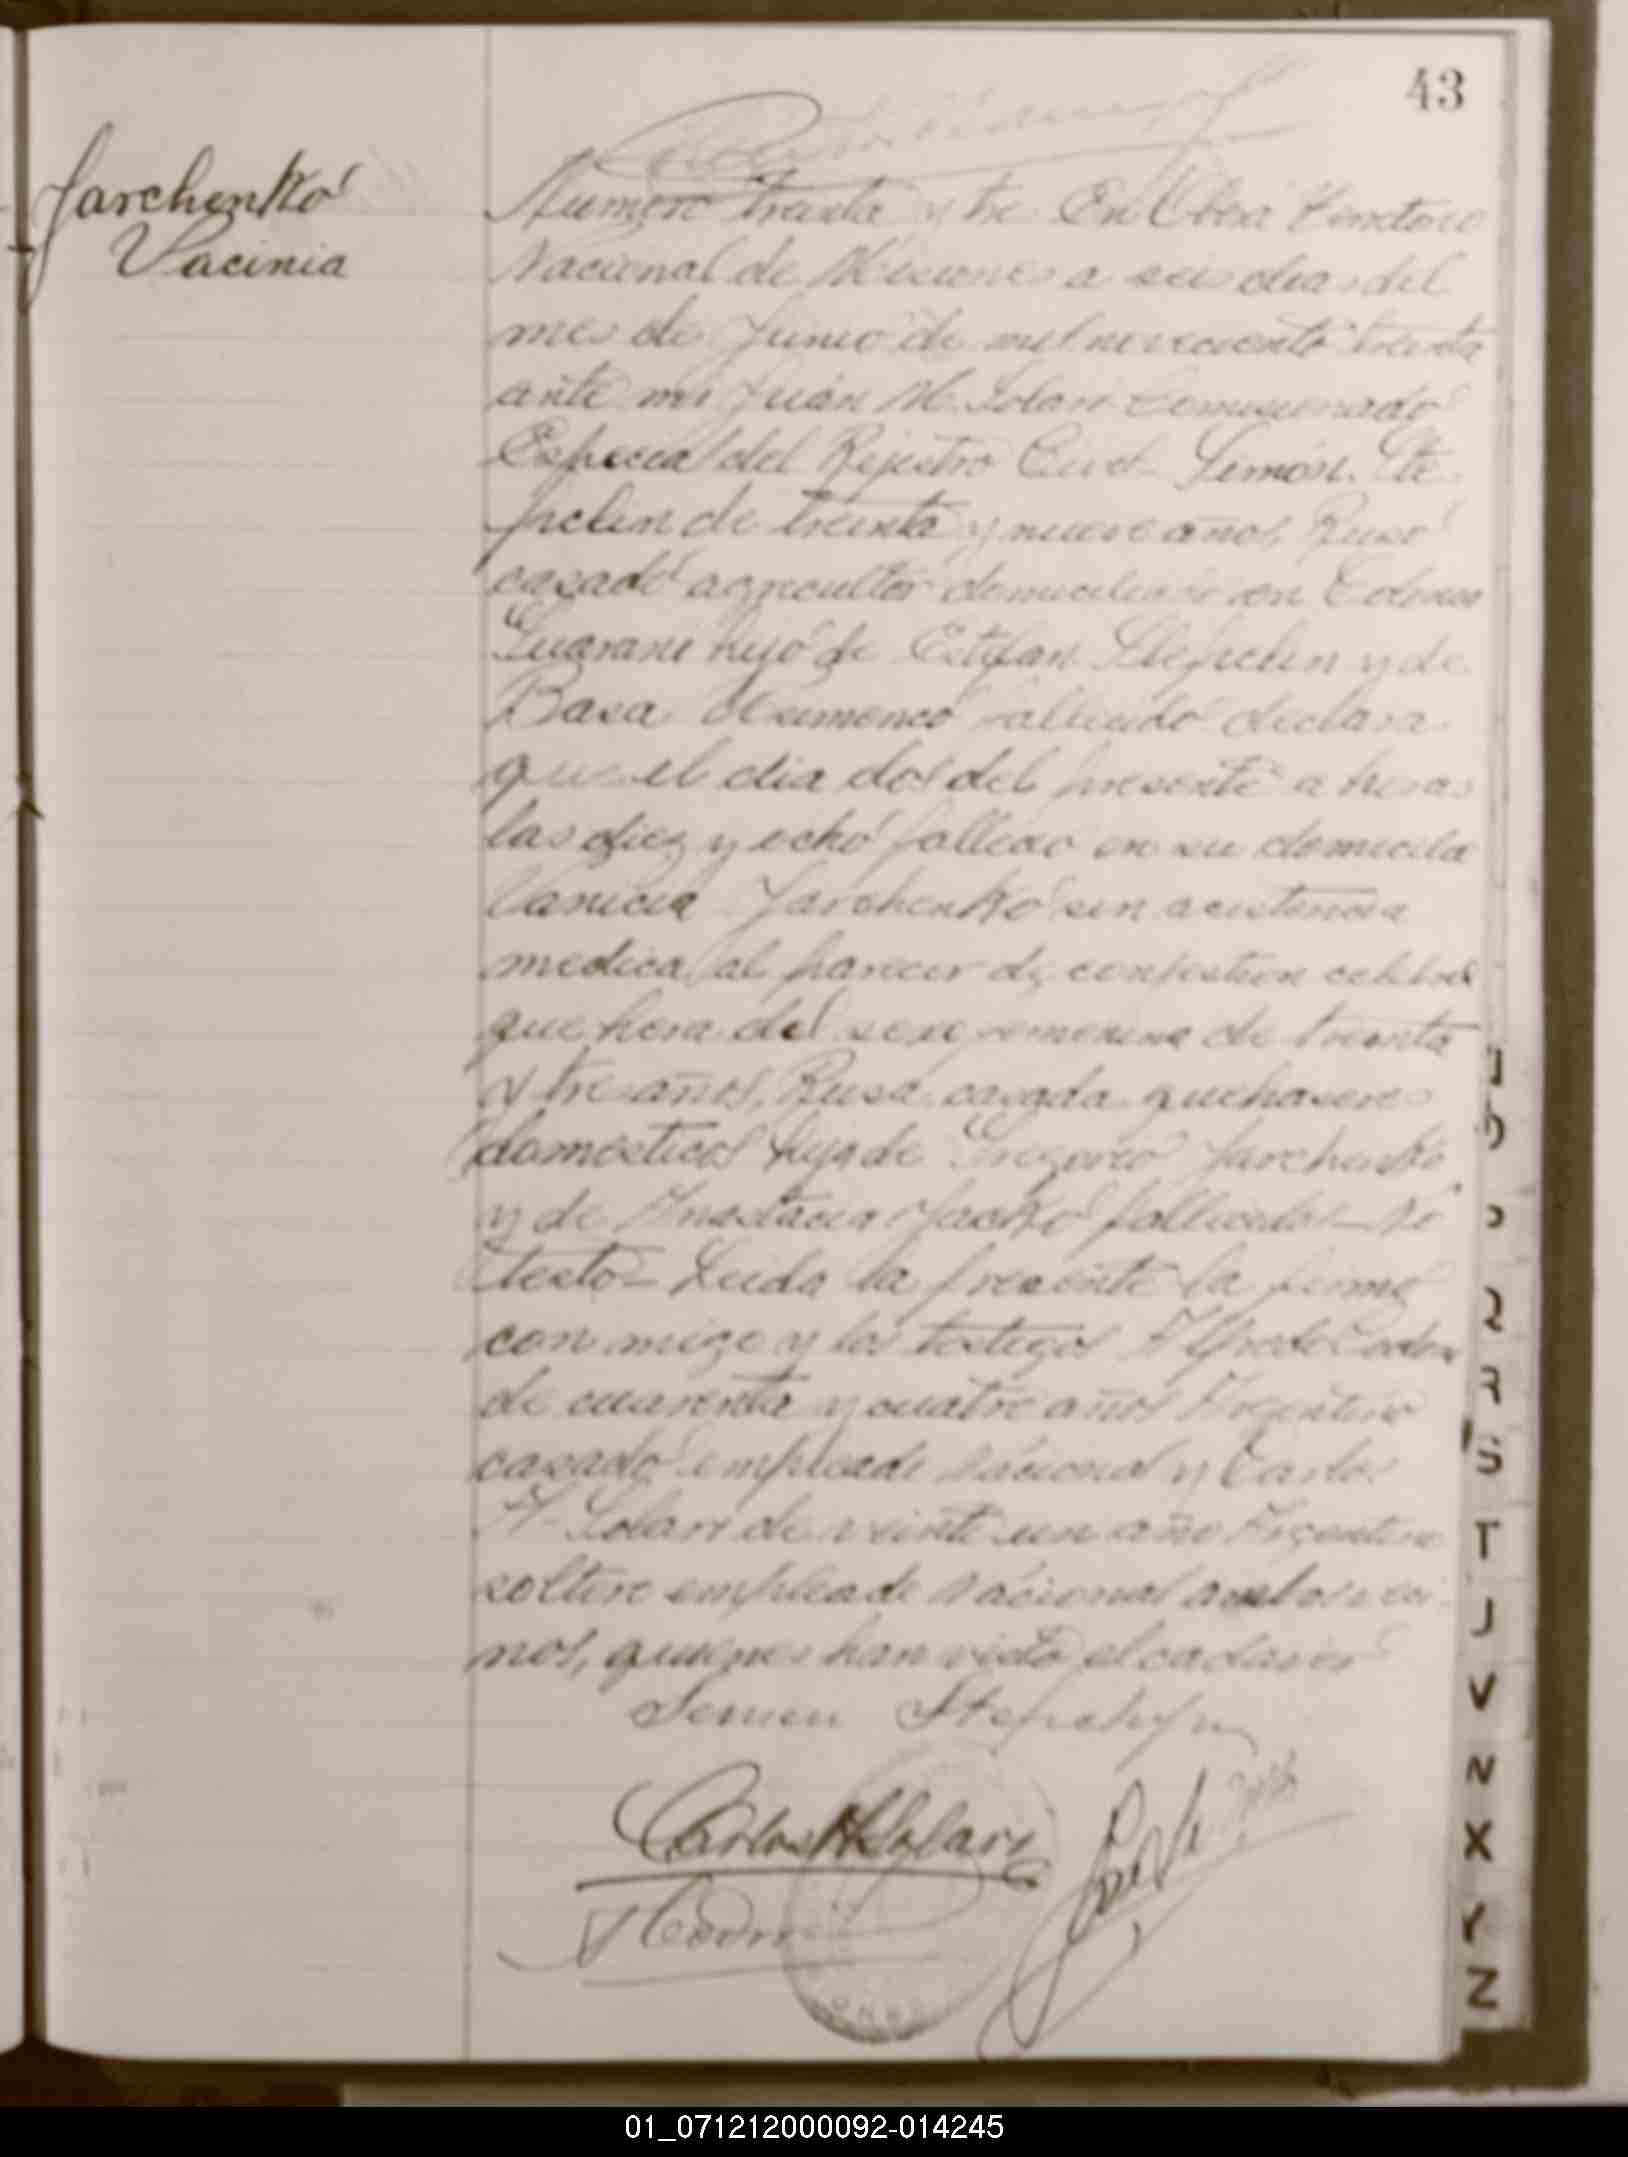 43
Jarchenko
Vacinia
Numero treinta y tre En Obera Territorio
Nacional de Misiones a seis dias del
mes de Junio de mil noveciento treinta
ante mi Juan M. Solari Comisionado
Especial del Rejistro Civil Simón Ste
pchen de treinta y nueve años, Ruso
casado agricultor domiciliado en Colonia
Guarani hijo de Estefan Stepchen y de
Basa fallecido declara
que el dia dos del presente a horas
las diez y ocho fallecio en su domicilio
Vanicia Jarchenko sin asistencia
medica al parecer de conjestion celebral
que hera del sexo femenino de treinta
y tre años, Rusa casada quehaseres
domésticos hija de Gregorio Jarchenko
y de Anastacia fallecidos No
testo - Leida la presente la firmo
con migo y los testigos Alfredo
de cuarenta y cuatro años Argentino
casado empleado Nacional y Carlos
A. Solari de veinte un año Argentino
soltero empleado Nacional ambos veci
nos, quienes han visto el cadaver
Semen
Carlos A Solari
01_071212000092-014245
Q
R
S
T
J
V
N
X
Y
Z